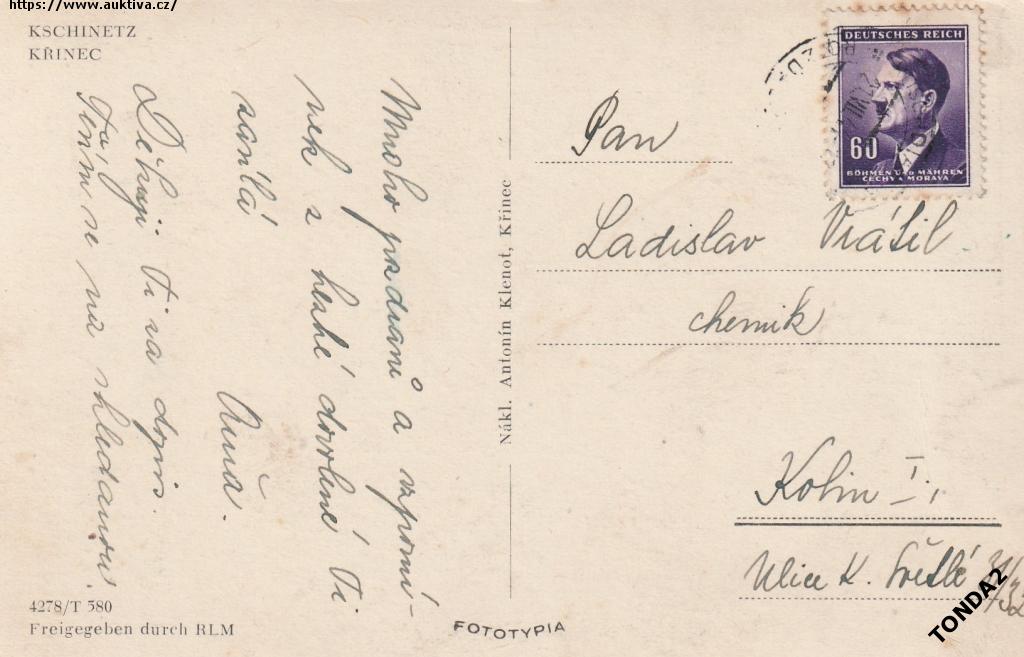 https://www.auktiva.cz/
KSCHINETZ
KŘINEC
Mnoho pozdravů a vzpomí-
nek z hezké dovolené Ti
zasílá
Anča.
Děkuji Ti za dopis.
Těším se na shledanou.
4278/T 380
Freigegeben durch RLM
Nákl. Antonín Klenot, Křinec
FOTOTYPIA
DEUTSCHES REICH
60
BÖHMEN UND MÄHREN
ČECHY A MORAVA
Pan
Ladislav Vrátil
chemik
Kolín I.
Ulice K. Světlé
TONDA2